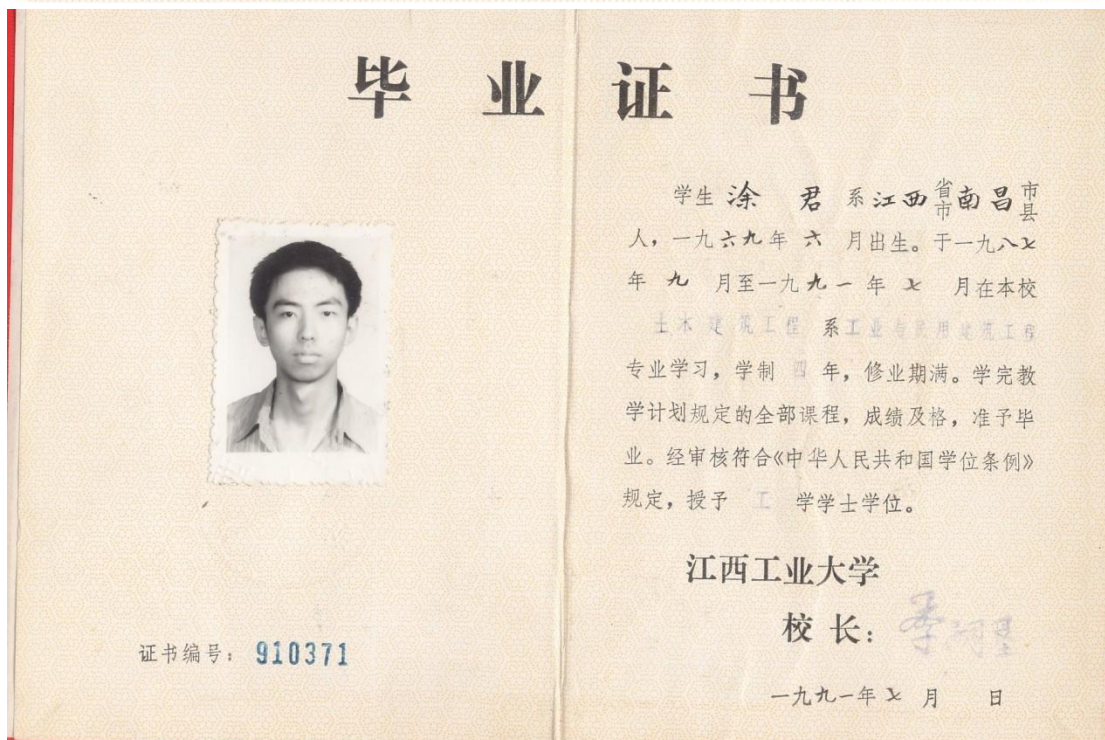 毕业证书
学生 涂 君 系江西省市南昌市县
人，一九六九年 六 月出生。于一九八七
年 九 月至一九九一年 七 月在本校
土木建筑工程 系工业与民用建筑工程
专业学习，学制 四 年，修业期满。学完教
学计划规定的全部课程，成绩及格，准予毕
业。经审核符合《中华人民共和国学位条例》
规定，授予 工 学学士学位。
江西工业大学
校长：
证书编号：910371
一九九一年 七 月 日